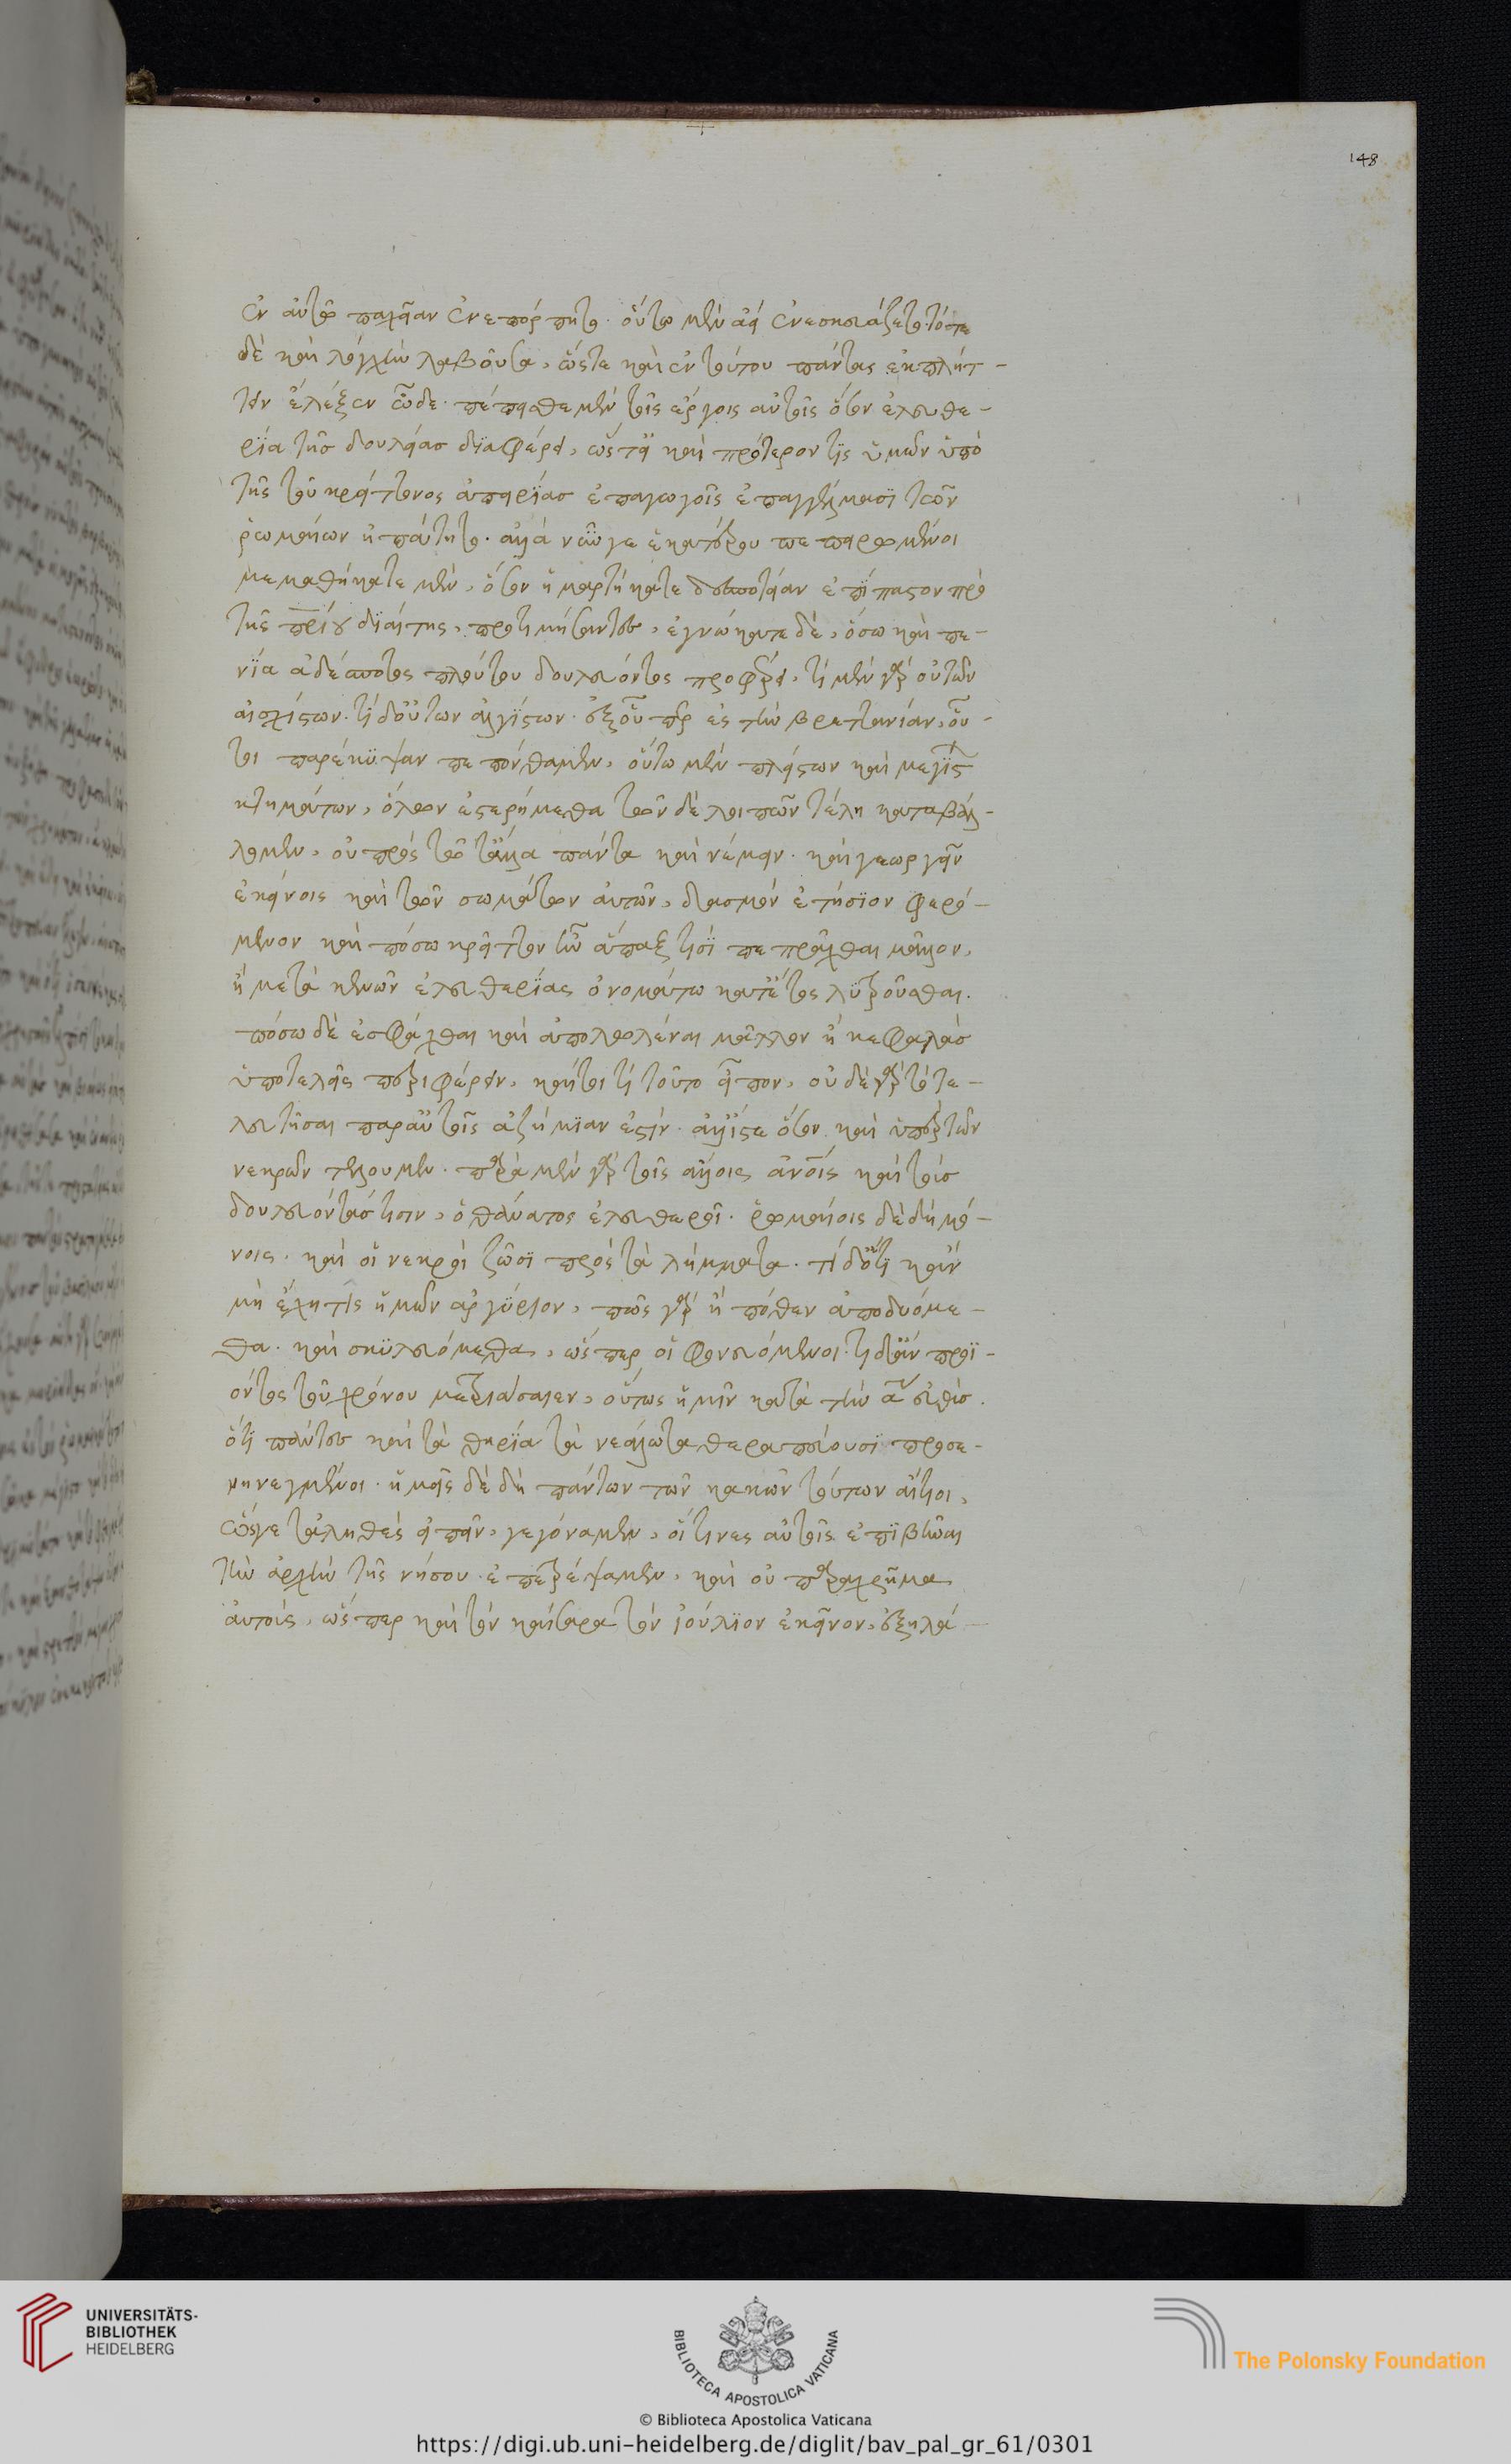 ἐν αὐτῷ παχεῖαν ἐνεπόρπητο. οὕτω μὲν ἀεὶ ἐνεσκευάζετο· τότε
δὲ καὶ λόγχην λαβοῦσα, ὥστε καὶ ἐκ τούτου πάντας ἐκπλήτ-
τειν ἔλεξεν ὧδε. πέπεισθε μὲν τοῖς ἔργοις αὐτοῖς ὅσον ἐλευθε-
ρία τῆς δουλείας διαφέρει, ὥστ' εἰ καὶ πρότερον τις ὑμῶν ὑπὸ
τῆς τοῦ κρείττονος ἀπειρίας ἐπαγωγοῖς ἐπαγγέλμασι τῶν
ῥωμαίων ἠπάτητο. ἀλλὰ νῦν γε ἑκατέρου πεπειραμένοι
μεμαθήκατε μὲν, ὅσον ἡμαρτήκατε δεσποτείαν ἐπίσπαστον πρὸ
τῆς πρίου διαίτης, προτιμήσαντες, ἐγνώκατε δὲ, ὅσω καὶ πε-
νία ἀδέσποτος πλούτου δουλεύοντος προφέρει. τί μὲν γὰρ οὐ τῶν
αἰσχίστων. τί δ' οὐ τῶν ἀλγίστων. ἐξ οὗ περ ἐς τὴν βρεττανίαν, οὗ-
τοι παρέκυψαν πεπόνθαμεν, οὕτω μὲν πλείστων καὶ μεγίστ
κτημάτων, ὅλων ἐστερήμεθα τῶν δὲ λοιπῶν τέλη καταβάλ-
λομεν, οὐ πρὸς τῷ τἆλλα πάντα καὶ νέμειν. καὶ γεωργεῖν
ἐκείνοις καὶ τῶν σωμάτων αὐτῶν, δασμὸν ἐτήσιον φερό-
μενον καὶ πόσω κρεῖττον ἦν ἅπαξ τισὶ πεπρᾶσθαι μᾶλλον,
ἢ μετὰ κενῶν ἐλευθερίας ὀνομάτω κατ' ἔτος λυτροῦσθαι.
πόσω δὲ ἐσφάχθαι καὶ ἀπολωλέναι μᾶλλον ἢ κεφαλὰς
ὑποτελεῖς περιφέρειν, καίτοι τί τοῦτο εἶπον, οὐδὲ γὰρ τὸ τε-
λευτῆσαι παρ' αὐτοῖς ἀζήμιαν ἐστὶν. ἀλλ' ἴστε ὅσον καὶ ὑπὲρ τῶν
νεκρῶν τελοῦμεν. παρὰ μὲν γὰρ τοῖς ἄλλοις ἀνοῖς καὶ τοὺς
δουλεύοντάς τισιν, ὁ θάνατος ἐλευθεροῖ. ῥωμαίοις δὲ δὴ μό-
νοις. καὶ οἱ νεκροὶ ζῶσι πρὸς τὰ λήμματα. τί δ' ὅτι κἂν
μὴ ἔχῃ τὶς ἡμῶν ἀργύριον, πῶς γὰρ ἢ πόθεν ἀποδυόμε-
θα. καὶ σκυλευόμεθα, ὥσπερ οἱ φονευόμενοι. τί δ' ἂν προϊ-
όντος τοῦ χρόνου μετριάσαιεν, οὕτως ἡμῖν κατὰ τὴν α εὐθὺς.
ὅτι πάντες καὶ τὰ θηρία τὰ νεάλωτα θεραπεύουσι προσε-
νηνεγμένοι. ἡμεῖς δὲ δὴ πάντων τῶν κακῶν τούτων αἴτιοι,
ὥς γε τἀληθὲς εἰπεῖν, γεγόναμεν, οἵτινες αὐτοῖς ἐπιβῆναι
τὴν ἀρχὴν τῆς νήσου ἐπετρέψαμεν, καὶ οὐ παραχρῆμα
αὐτοὺς, ὥσπερ καὶ τὸν καίσαρα τὸν ἰούλιον ἐκεῖνον, ἐξηλά-
148
UNIVERSITÄTS-
BIBLIOTHEK
HEIDELBERG
BIBLIOTECA APOSTOLICA VATICANA
The Polonsky Foundation
© Biblioteca Apostolica Vaticana
https://digi.ub.uni-heidelberg.de/diglit/bav_pal_gr_61/0301